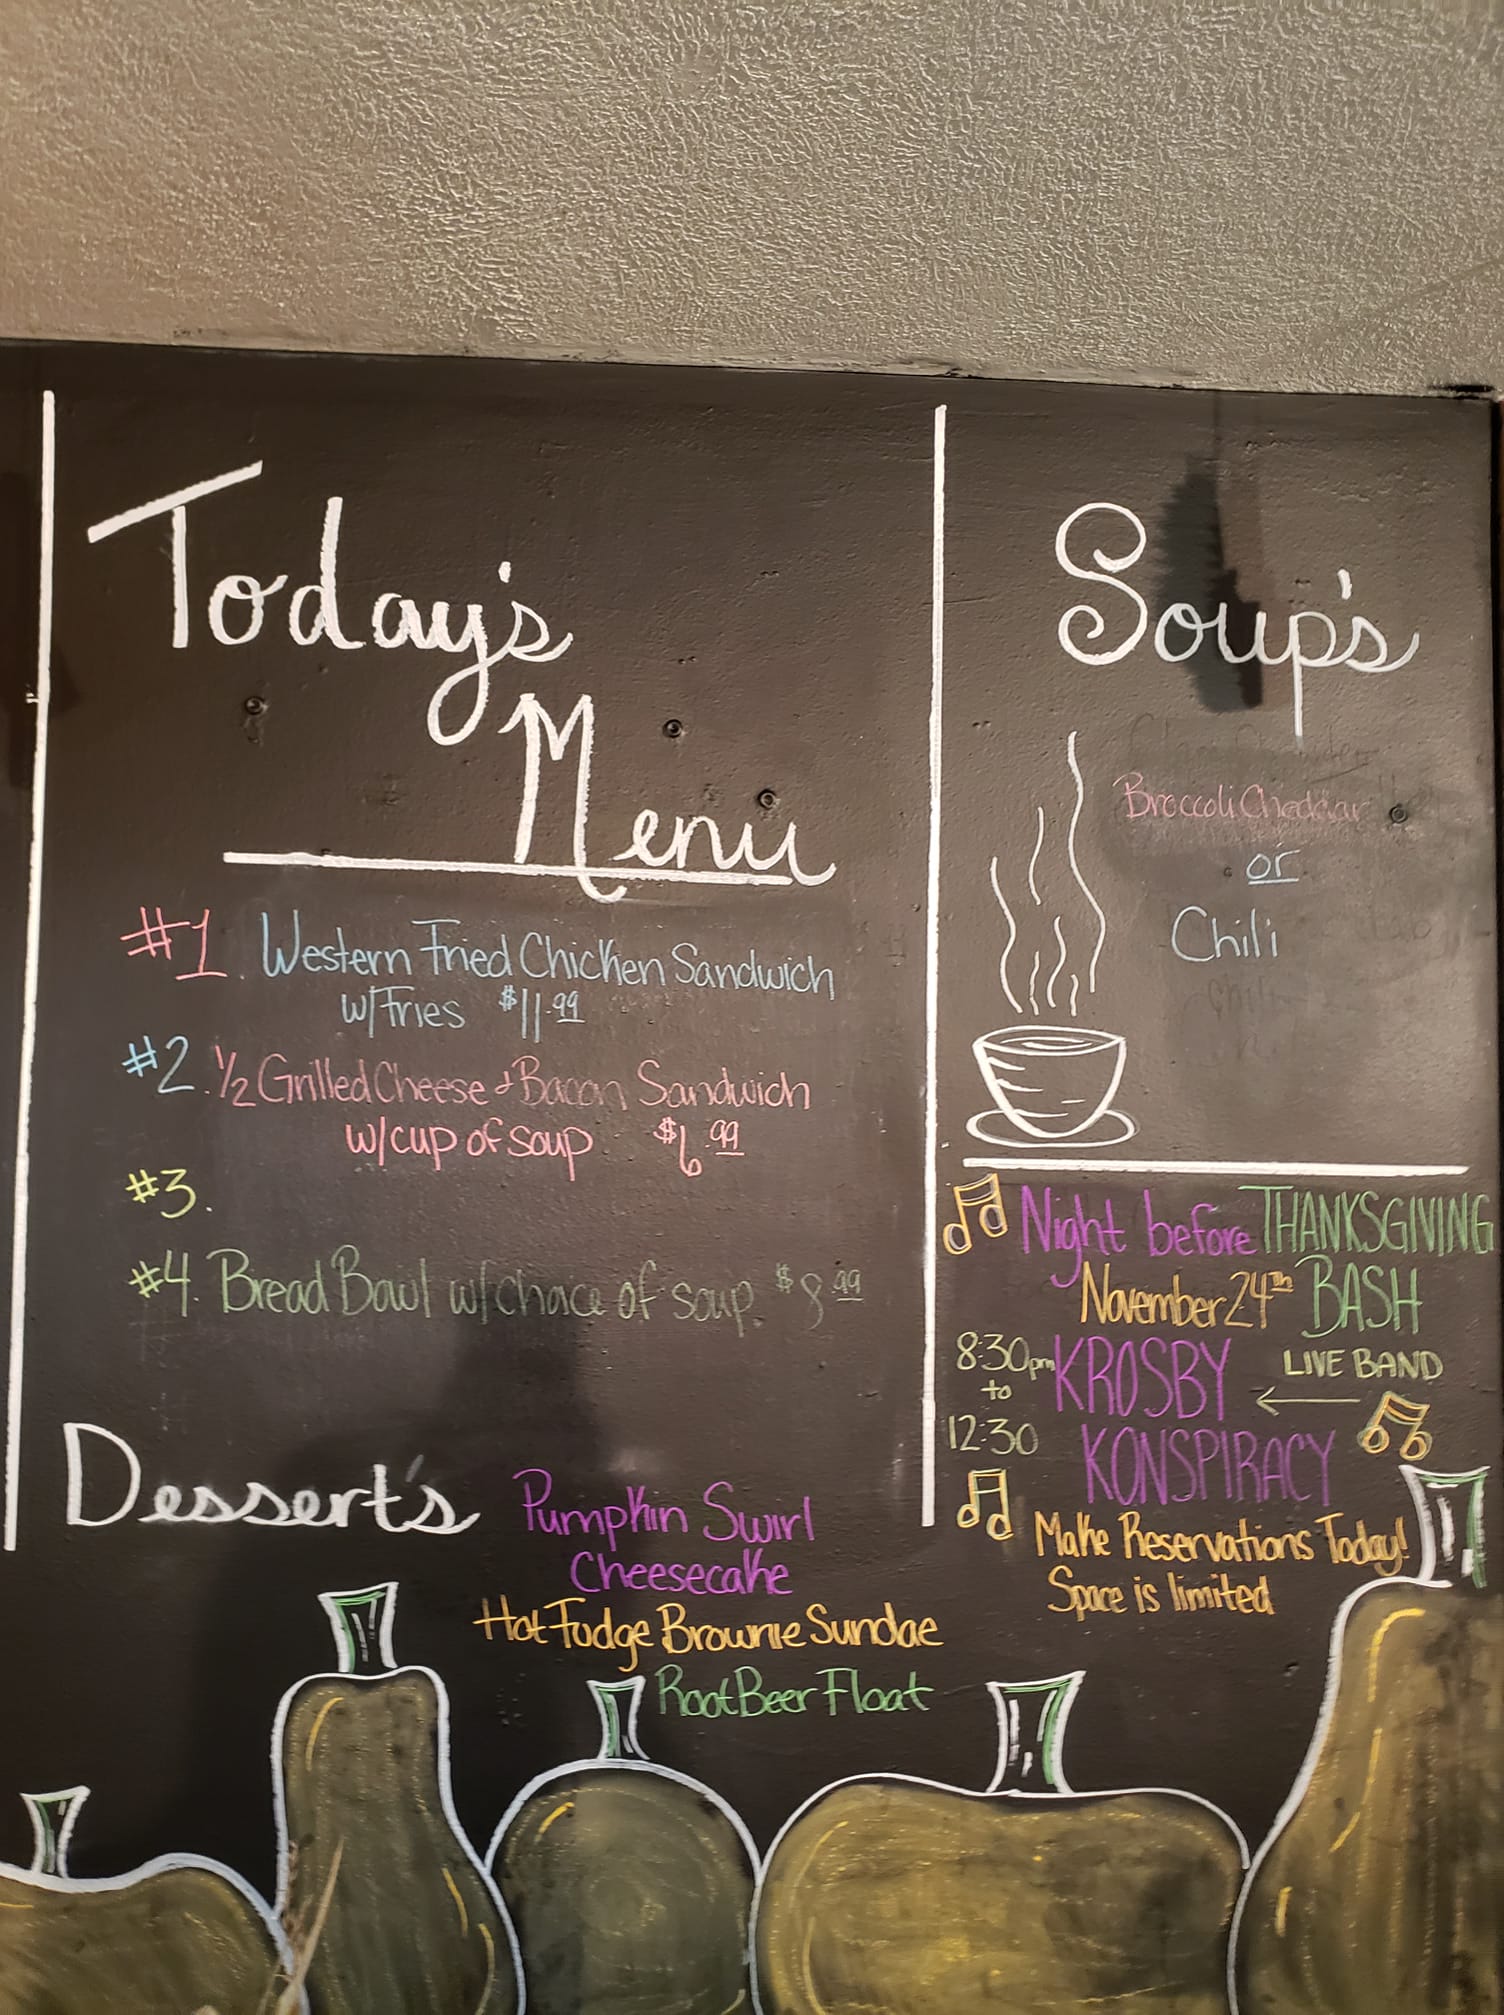 Today's
Menu
#1. Western Fried Chicken Sandwich
w/Fries $11.99
#2. 1/2 Grilled Cheese & Bacon Sandwich
w/cup of soup $6.99
#3.
#4. Bread Bowl w/choice of soup $8.99
Dessert's
Pumpkin Swirl
Cheesecake
Hot Fudge Brownie Sundae
Root Beer Float
Soup's
Broccoli Cheddar
or
Chili
Night before THANKSGIVING
November 24th BASH
8:30pm
to
12:30
KROSBY
KONSPIRACY
LIVE BAND
Make Reservations Today!
Space is limited